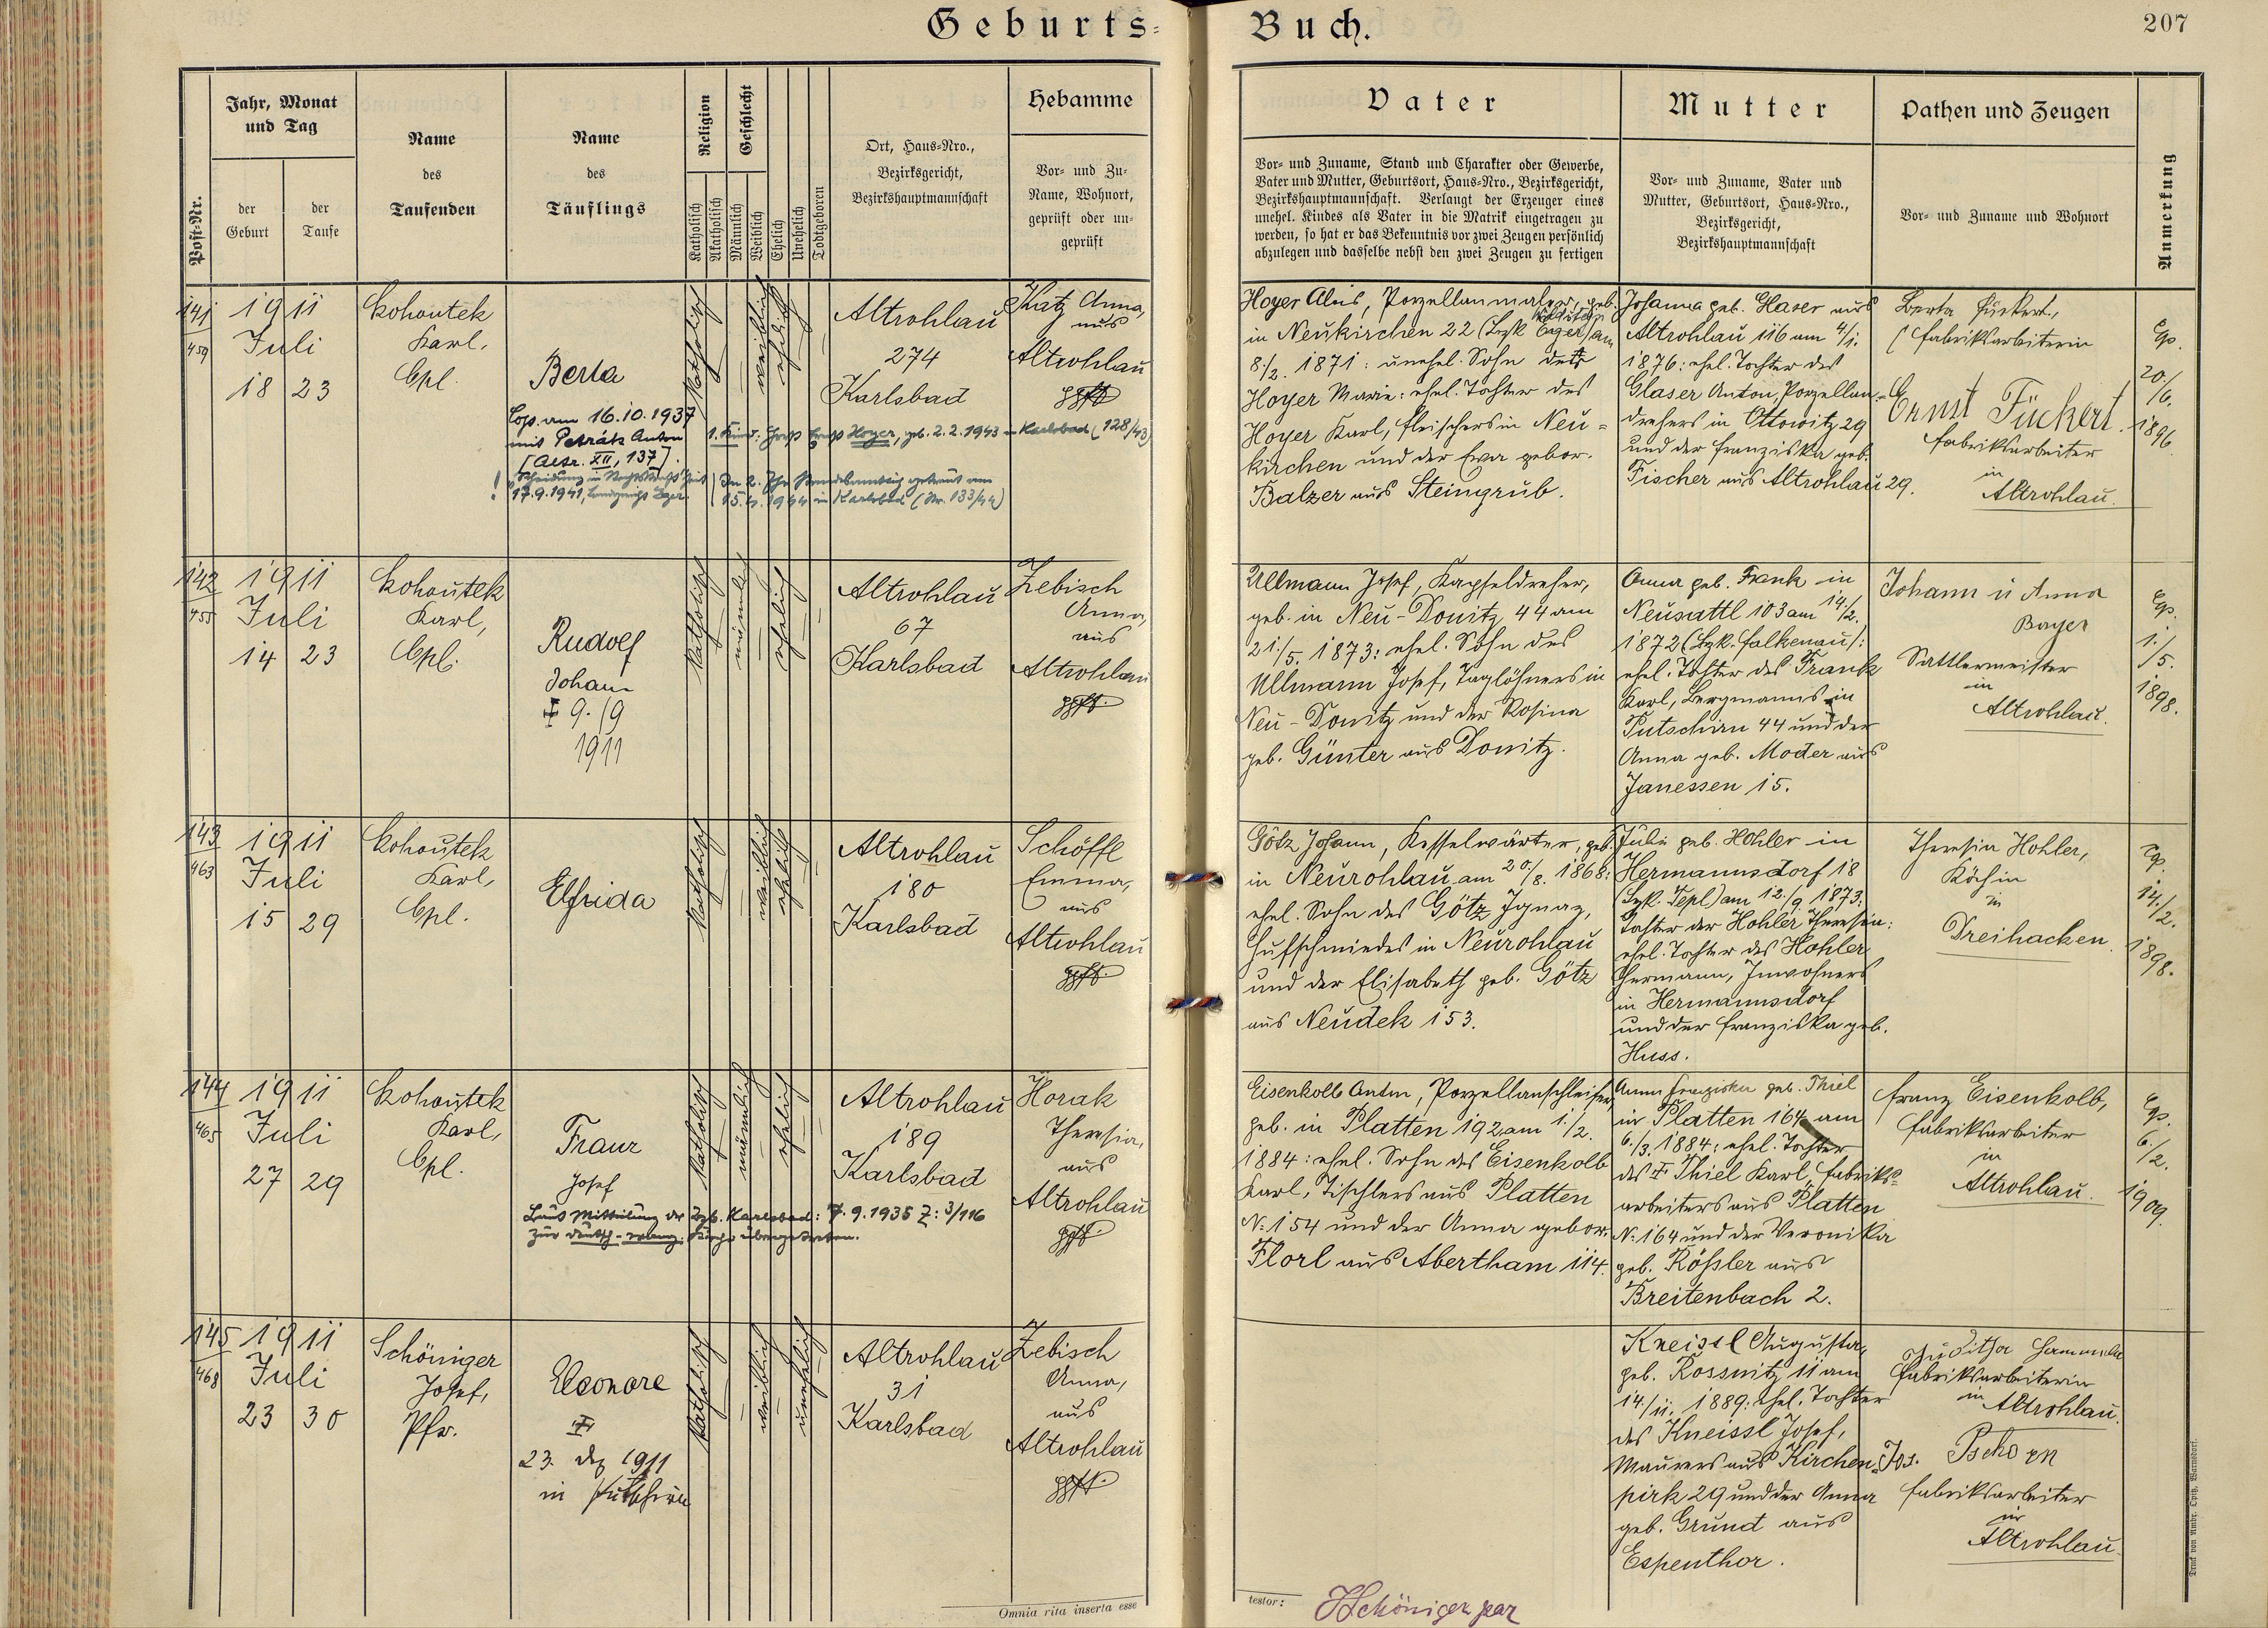 Geburts-
Buch.
207
Post-Nr.
Jahr, Monat
und Tag
der
Geburt
der
Taufe
Name
des
Taufenden
Name
des
Täuflings
Religion
Katholisch
Akatholisch
Geschlecht
Männlich
Weiblich
Ehelich
Unehelich
Todtgeboren
Ort, Haus-Nro.,
Bezirksgericht,
Bezirkshauptmannschaft
Hebamme
Vor- und Zu-
Name, Wohnort,
geprüft oder un-
geprüft
Vater
Vor- und Zuname, Stand und Charakter oder Gewerbe,
Vater und Mutter, Geburtsort, Haus-Nro., Bezirksgericht,
Bezirkshauptmannschaft. Verlangt der Erzeuger eines
unehel. Kindes als Vater in die Matrik eingetragen zu
werden, so hat er das Bekenntnis vor zwei Zeugen persönlich
abzulegen und dasselbe nebst den zwei Zeugen zu fertigen
Mutter
Vor- und Zuname, Vater und
Mutter, Geburtsort, Haus-Nro.,
Bezirksgericht,
Bezirkshauptmannschaft
Pathen und Zeugen
Vor- und Zuname und Wohnort
Anmerkung
141
459
1911
Juli
18 23
Kohoutek
Karl,
Cpl.
Berta
Cop. am 16.10.1937
mit Petrák Anton
[Altr. XII, 137].
17.9.1941, Landgericht Eger.
1. Kind: Horst Ernst Hoyer, geb. 2.2.1943 in Karlsbad (128/43)
In 2. Ehe standesamtlich getraut am
15.4.1944 in Karlsbad (Nr. 133/44)
katholisch
weiblich
ehelich
Altrohlau
274
Karlsbad
Katz Anna,
aus
Altrohlau
gpft
Hoyer Alois, Porzellanmaler, geb.
in Neukirchen 22 (Bzk Eger) am
8./2. 1871: unehel. Sohn der
Hoyer Marie: ehel. Tochter des
Hoyer Karl, Fleischers in Neu-
kirchen und der Eva gebor.
Balzer aus Steingrub.
Johanna geb. Glaser aus
Altrohlau 116 am 4/1.
1876: ehel. Tochter des
Glaser Anton, Porzellan-
drehers in Ottowitz 29
und der Franziska geb.
Fischer aus Altrohlau 29.
Berta Fückert,
Fabriksarbeiterin
Ernst Fückert.
Fabriksarbeiter
in
Altrohlau.
Cop.
20./
/6.
1896.
142
455
1911
Juli
14 23
Kohoutek
Karl,
Cpl.
Rudolf
Johann
† 9./9
1911
katholisch
männlich
ehelich
Altrohlau
67
Karlsbad
Zebisch
Anna,
aus
Altrohlau
gpft.
Ullmann Josef, Kapseldreher,
geb. in Neu-Donitz 44 am
21./5. 1873: ehel. Sohn des
Ullmann Josef, Taglöhners in
Neu-Donitz und der Rosina
geb. Günter aus Donitz.
Anna geb. Frank in
Neusattl 103 am 14./2.
1872 (Bzk. Falkenau):
ehel. Tochter des Frank
Karl, Bergmanns in
Putschirn 44 und der
Anna geb. Moder aus
Janessen 15.
Johann u Anna
Bayer
Sattlermeister
in
Altrohlau.
Cop.
1./
/5.
1898.
143
463
1911
Juli
15 29
Kohoutek
Karl,
Cpl.
Elfrida
katholisch
weiblich
ehelich
Altrohlau
180
Karlsbad
Schöffl
Emma,
aus
Altrohlau
gpft.
Götz Johann, Kesselwärter, geb.
in Neurohlau am 20./8. 1868:
ehel. Sohn des Götz Ignaz,
Hufschmiedes in Neurohlau
und der Elisabeth geb. Götz
aus Neudek 153.
Julie geb. Hohler in
Hermannsdorf 18
(Bzk. Tepl) am 12./9 1873:
Tochter der Hohler Theresia:
ehel. Tochter des Hohler
Hermann, Inwohners
in Hermannsdorf
und der Franziska geb.
Huss.
Theresia Hohler,
Köchin
in
Dreihacken.
Cop.
14./
/2.
1898.
144
465
1911
Juli
27 29
Kohoutek
Karl,
Cpl.
Franz
Josef
Laut Mitteilung der Bzb. Karlsbad: 7.9.1935 Z: 3/116
zur deutsch-evang. Kirche übergetreten.
katholisch
männlich
ehelich
Altrohlau
189
Karlsbad
Horak
Theresia,
aus
Altrohlau
gpft.
Eisenkolb Anton, Porzellanschleifer,
geb. in Platten 192 am 1./2.
1884: ehel. Sohn des Eisenkolb
Karl, Tischlers aus Platten
N: 154 und der Anna gebor.
Florl aus Abertham 114.
Anna Franziska geb. Thiel
in Platten 164 am
6./3. 1884: ehel. Tochter
des † Thiel Karl, Fabriks-
arbeiters aus Platten
N: 164 und der Veronika
geb. Rößler aus
Breitenbach 2.
Franz Eisenkolb,
Fabriksarbeiter
in
Altrohlau.
Cop.
6./
/2.
1909.
145
468
1911
Juli
23 30
Schöniger
Josef,
Pfr.
Eleonore
†
23. Dez 1911
in Putschirn
katholisch
weiblich
unehelich
Altrohlau
31
Karlsbad
Zebisch
Anna,
aus
Altrohlau
gpft.
Kneissl Augusta,
geb. Rossnitz 11 am
14./11. 1889: ehel. Tochter
des Kneissl Josef,
Maurers aus Kirchen-
pirk 29 und der Anna
geb. Grund aus
Espenthor.
Juditha
Fabriksarbeiterin
in
Altrohlau.
Jos. Pschorn
Fabriksarbeiter
in
Altrohlau.
Omnia rita inserta esse
testor:
JSchöniger par
Druck von Ambr. Opitz, Warnsdorf.